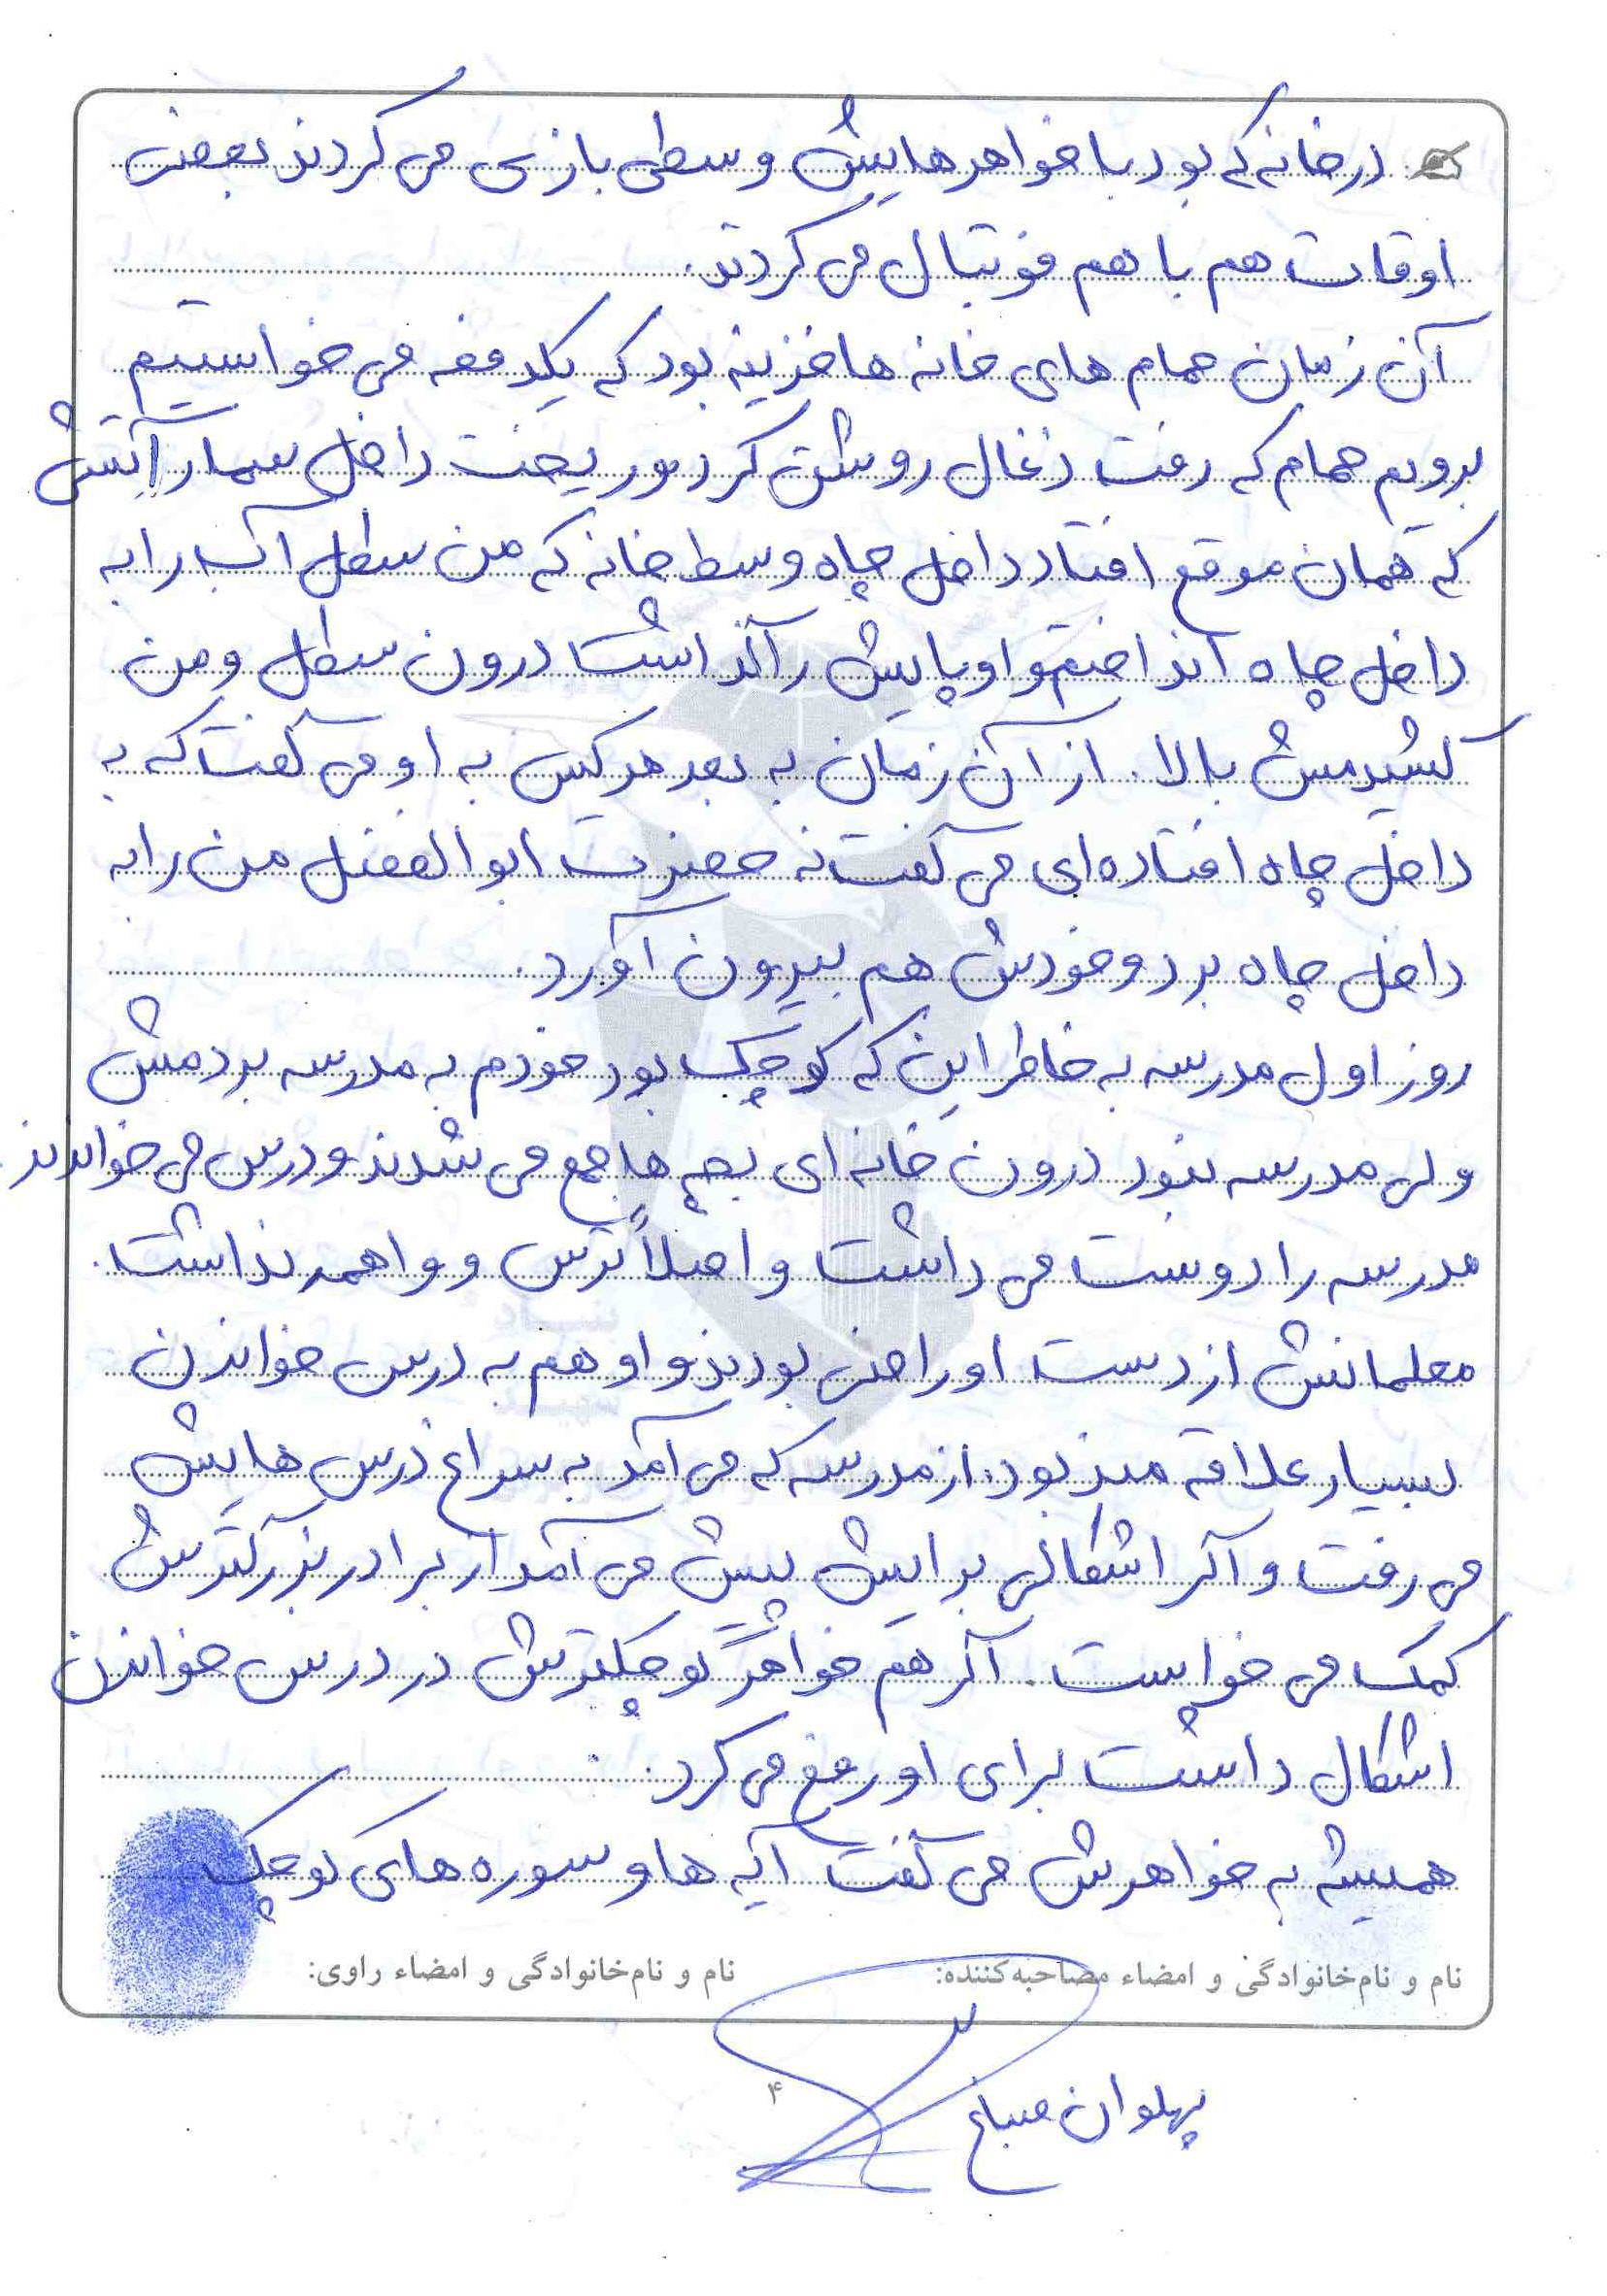 در خانه که بود با خواهر هایش وسطی بازی می کردند بعضی
اوقات هم با هم فوتبال می کردند.
آن زمان حمام های خانه ها خزینه بود که یکدفعه می خواستیم
برویم حمام که رفت ذغال روشن کرد و ریخت داخل سمار آتش
که همان موقع افتاد داخل چاه وسط خانه که من سطل آب را به
داخل چاه انداختم و او پایش را گذاشت درون سطل و من
کشیدمش بالا. از آن زمان به بعد هر کس به او می گفت که به
داخل چاه افتاده ای می گفت نه حضرت ابوالفضل من را به
داخل چاه برد و خودش هم بیرون آورد.
روز اول مدرسه به خاطر این که کوچک بود خودم به مدرسه بردمش
ولی مدرسه نبود درون خانه ای بچه ها جمع می شدند و درس می خواندند.
مدرسه را دوست می داشت و اصلاً ترس و واهمه نداشت.
معلمانش از دست او راضی بودند و او هم به درس خواندن
بسیار علاقه مند بود. از مدرسه که می آمد به سراغ درس هایش
می رفت و اگر اشکالی برایش پیش می آمد از برادر بزرگترش
کمک می خواست. اگر هم خواهر کوچکترش در درس خواندن
اشکال داشت برای او رفع می کرد.
همیشه به خواهرش می گفت آیه ها و سوره های کوچک
نام و نام‌خانوادگی و امضاء مصاحبه‌کننده: نام و نام‌خانوادگی و امضاء راوی:
پهلوان صباغ
۴